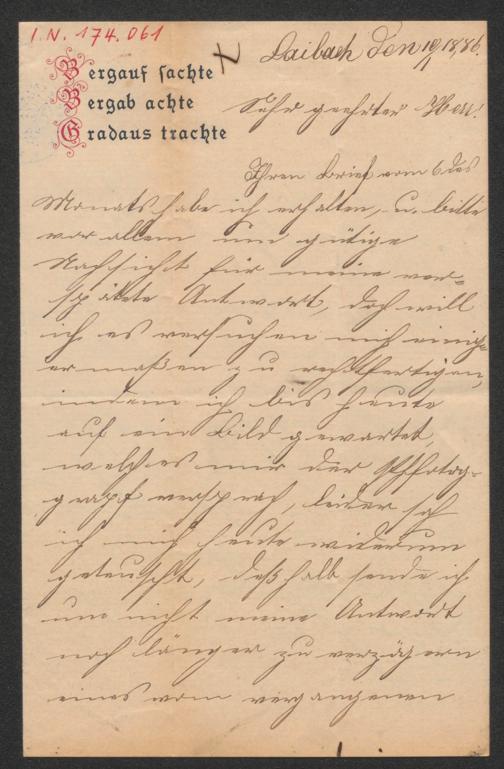 I.N. 174.061
Laibach den 19/1 1886.
Bergauf sachte
Bergab achte
Gradaus trachte
Sehr geehrter Herr!
Ihren Brief vom 6 des
Monats habe ich erhalten, u. bitte
vor allem um gütige
Nachsicht für meine ver=
spätete Antwort, doch will
ich es versuchen mich einig=
ermaßen zu rechtfertigen,
indem ich bis heute
auf ein Bild gewartet,
welches mir der Phfotog=
grapf versprach, leider sah
ich mich heute wiederum
geteuscht, deßhalb sende ich
um nicht meine Antwort
noch länger zu verzögern
eines vom vergangenen